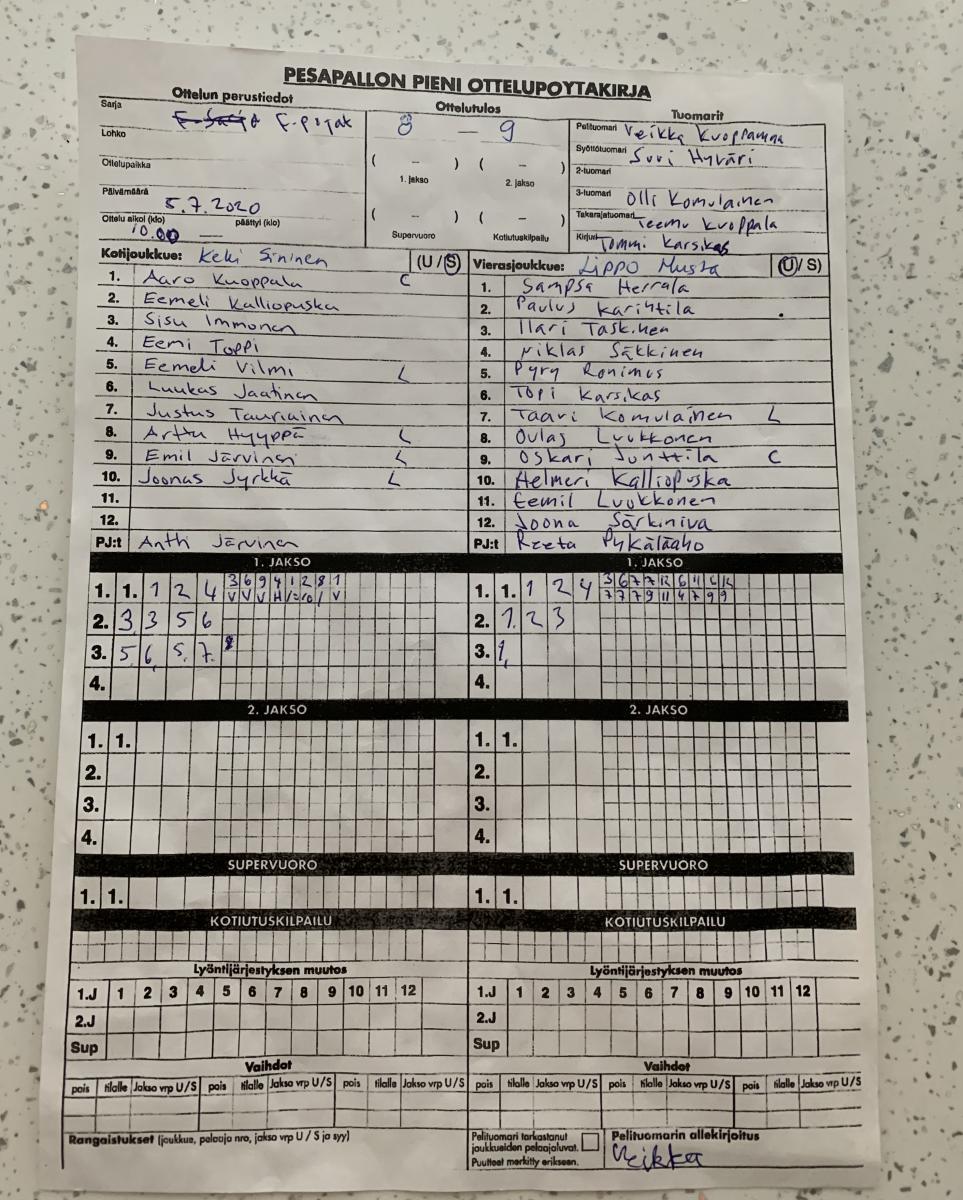 PESÄPALLON PIENI OTTELUPÖYTÄKIRJA
Ottelun perustiedot
Ottelutulos
Tuomarit
Sarja F-pojat
Lohko
Ottelupaikka
Päivämäärä
5.7.2020
Ottelu alkoi (klo) päättyi (klo)
10.00 —
8 — 9
( – ) ( – )
1. jakso 2. jakso
( – ) ( – )
Supervuoro Kotiutuskilpailu
Pelituomari Veikka Kuoppamaa
Syöttötuomari Suvi Hyväri
2-tuomari
3-tuomari Olli Komulainen
Takarajatuomari Teemu Kuoppala
Kirjuri Tommi Karsikas
Kotijoukkue: Keki Sininen (U / S)
1. Aaro Kuoppala C
2. Eemeli Kalliopuska
3. Sisu Immonen
4. Eemi Toppi
5. Eemeli Vilmi L
6. Luukas Jaatinen
7. Justus Tauriainen
8. Arttu Hyyppä L
9. Emil Järvinen L
10. Joonas Jyrkkä L
11.
12.
PJ:t Antti Järvinen
Vierasjoukkue: Lippo Musta (U / S)
1. Sampsa Herrala
2. Paulus Karihtila
3. Ilari Taskinen
4. Niklas Säkkinen
5. Pyry Ronimus
6. Topi Karsikas
7. Taavi Komulainen L
8. Oulas Luukkonen
9. Oskari Junttila C
10. Helmeri Kalliopuska
11. Eemil Luukkonen
12. Joona Särkiniva
PJ:t Reeta Pykäläaho
1. JAKSO
1. 1. 1 2 4 3 6 9 4 1 2 8 1
V V V H
2. 3 3 5 6
3. 5, 6, 5, 7.
4.
1. JAKSO
1. 1. 1 2 4 3 6 7 7 12 6 11
7 7 7 9 11 4 7 9 9
2. 1. 2 3
3. 1,
4.
2. JAKSO
1. 1.
2.
3.
4.
2. JAKSO
1. 1.
2.
3.
4.
SUPERVUORO
1. 1.
SUPERVUORO
1. 1.
KOTIUTUSKILPAILU
KOTIUTUSKILPAILU
Lyöntijärjestyksen muutos
1.J 1 2 3 4 5 6 7 8 9 10 11 12
2.J
Sup
Lyöntijärjestyksen muutos
1.J 1 2 3 4 5 6 7 8 9 10 11 12
2.J
Sup
Vaihdot
pois tilalle Jakso vrp U/S pois tilalle Jakso vrp U/S pois tilalle Jakso vrp U/S
Vaihdot
pois tilalle Jakso vrp U/S pois tilalle Jakso vrp U/S pois tilalle Jakso vrp U/S
Rangaistukset (joukkue, pelaaja nro, jakso vrp U / S ja syy)
Pelituomari tarkastanut
joukkueiden pelaajaluvat.
Puutteet merkitty erikseen.
Pelituomarin allekirjoitus
Veikka